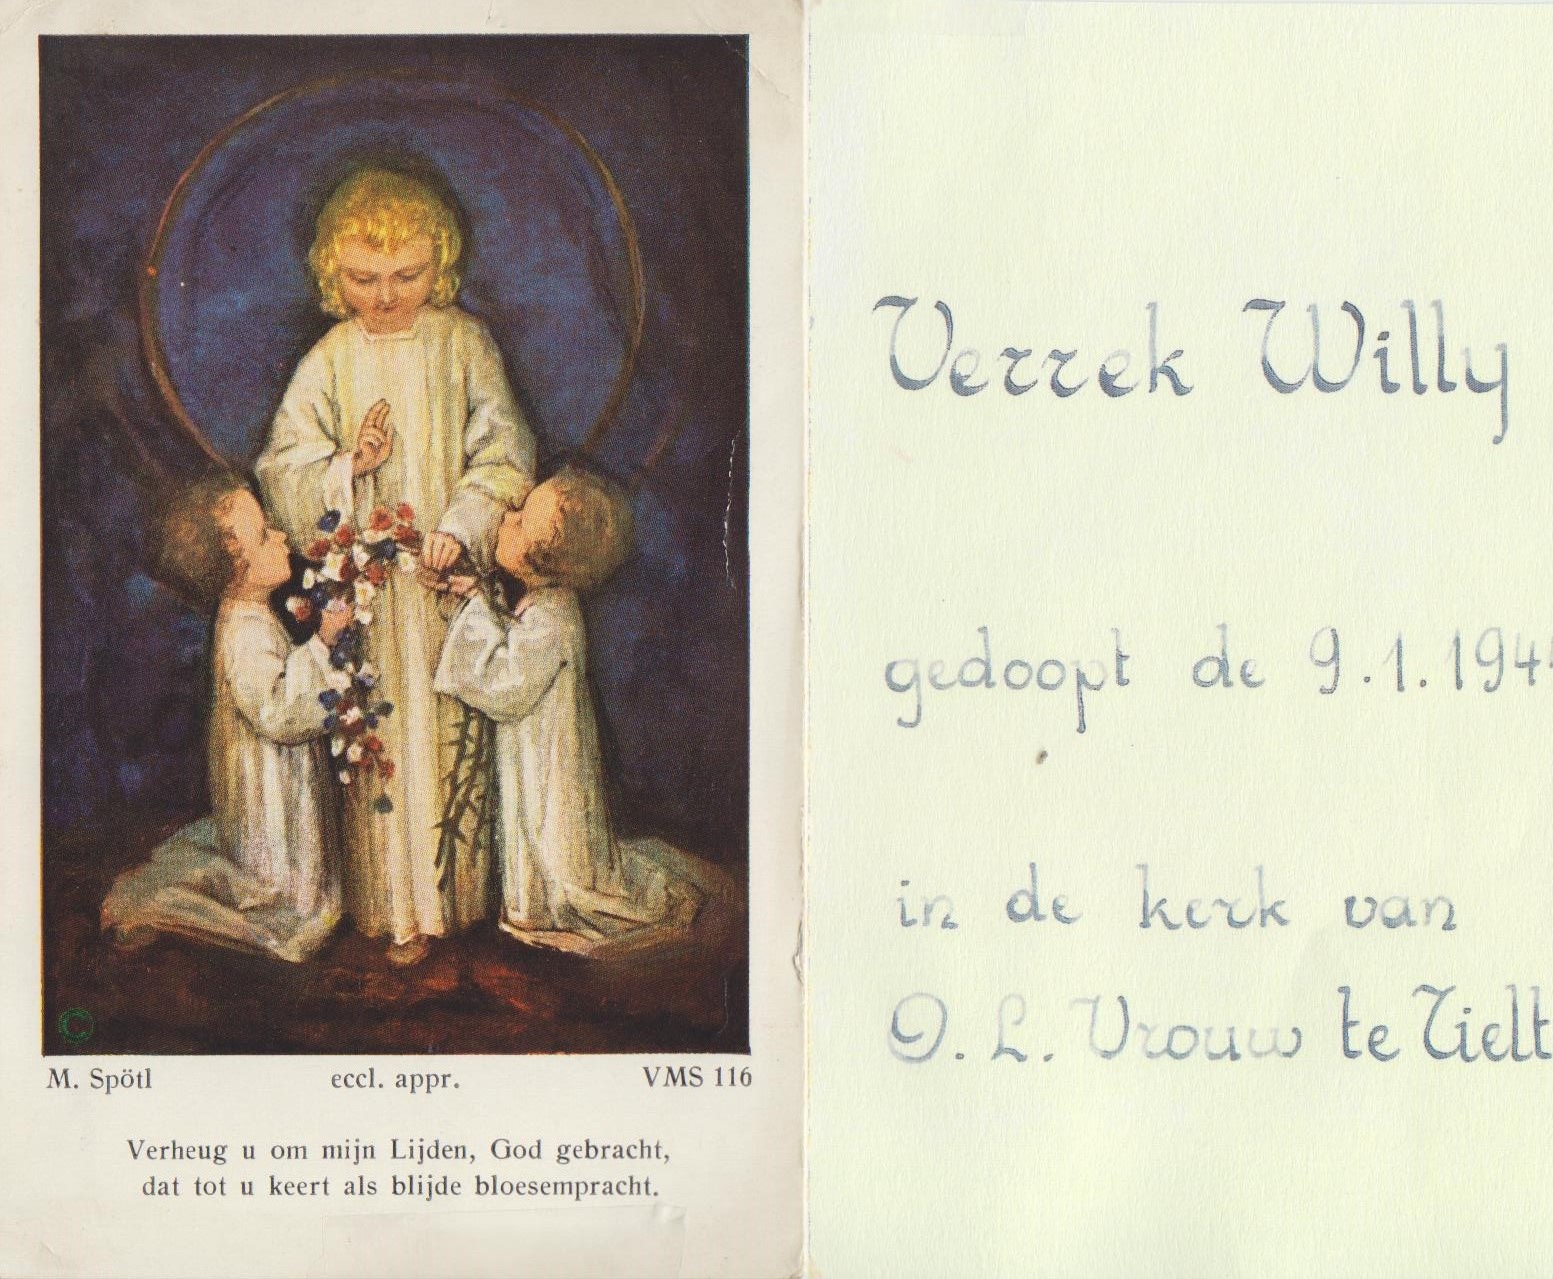 ©
M. Spötl eccl. appr. VMS 116
Verheug u om mijn Lijden, God gebracht,
dat tot u keert als blijde bloesempracht.
Verrek Willy
gedoopt de 9.1.194
in de kerk van
O. L. Vrouw te Tielt